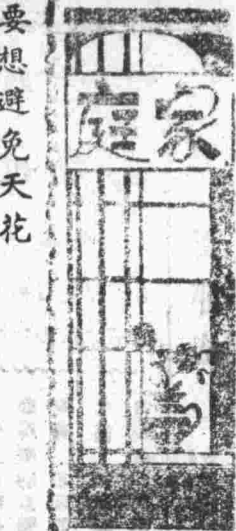 家庭
要想避免天花